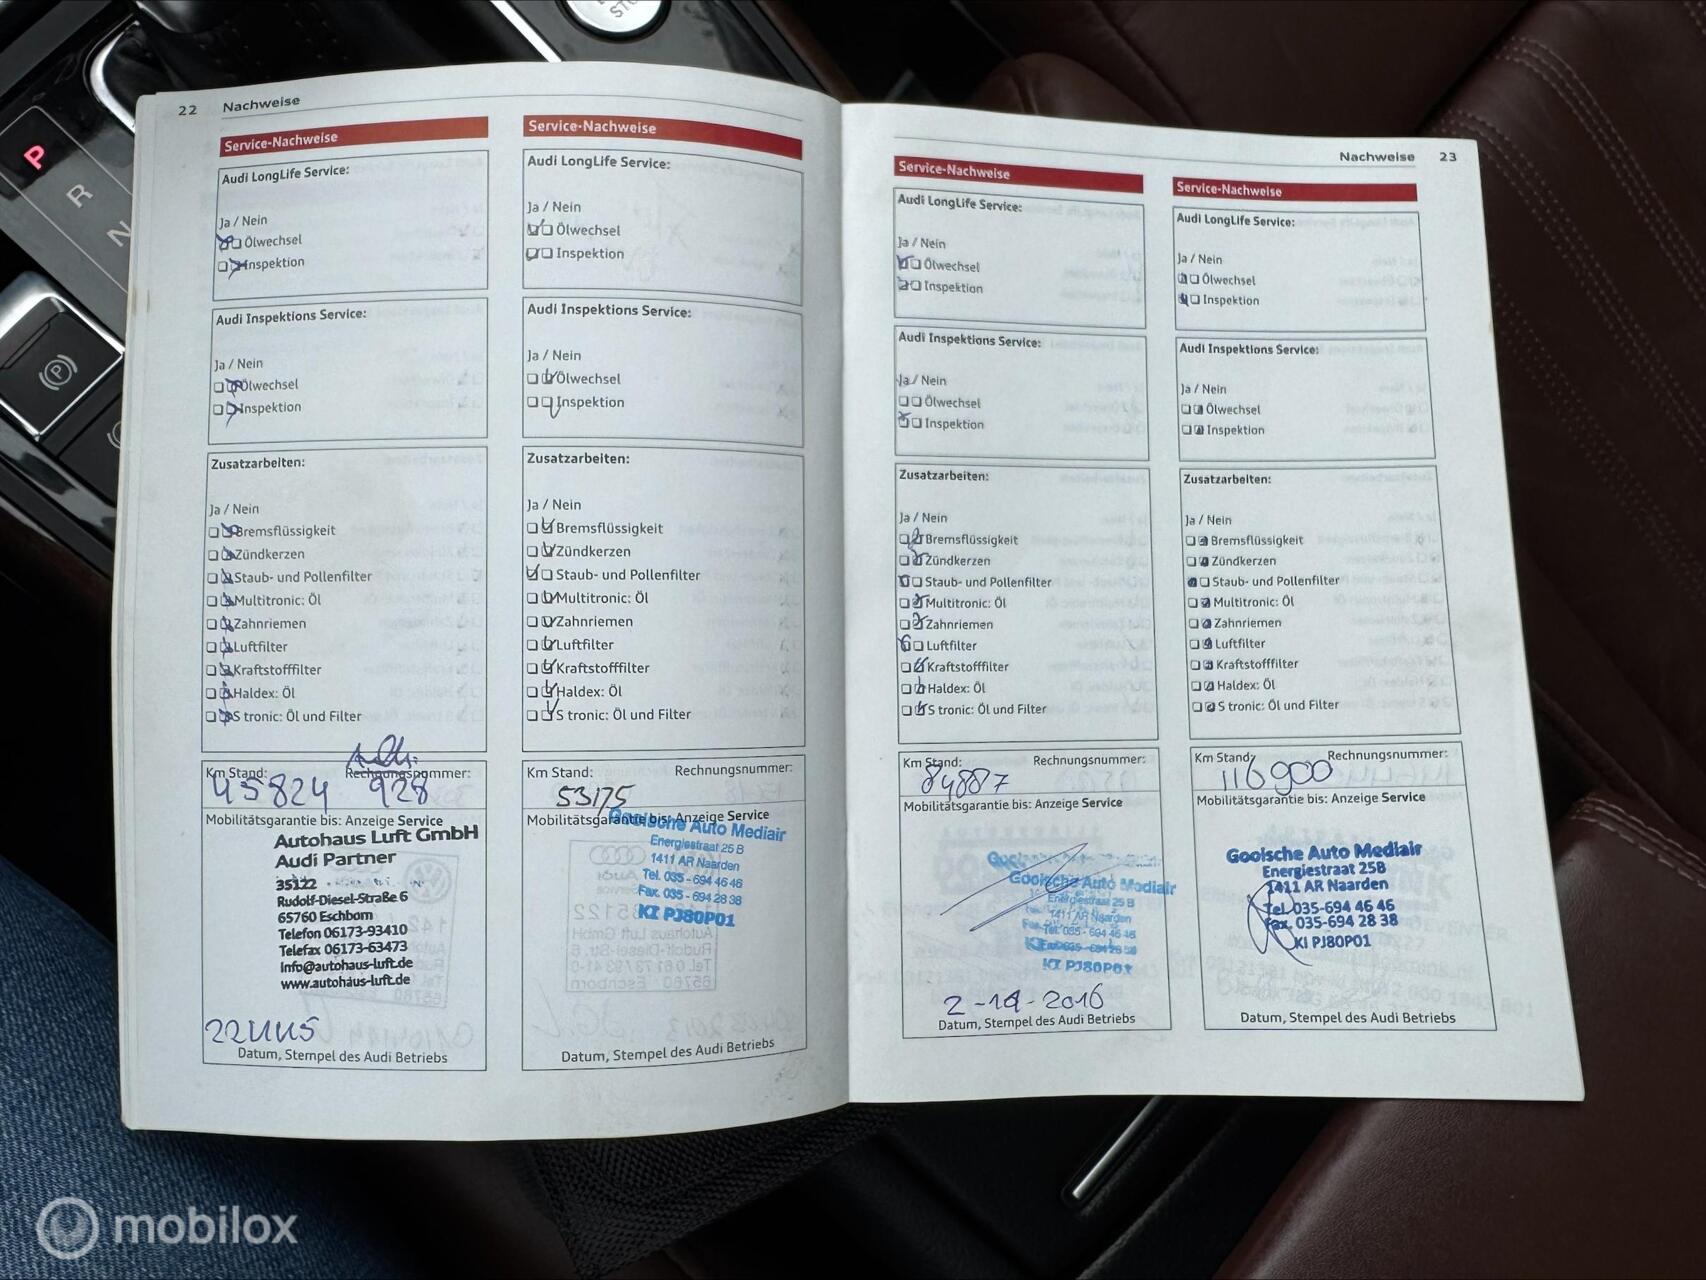 P
R
N
22 Nachweise
Service-Nachweise
Audi LongLife Service:
Ja / Nein
Ölwechsel
Inspektion
Audi Inspektions Service:
Ja / Nein
Ölwechsel
Inspektion
Zusatzarbeiten:
Ja / Nein
Bremsflüssigkeit
Zündkerzen
Staub- und Pollenfilter
Multitronic: Öl
Zahnriemen
Luftfilter
Kraftstofffilter
Haldex: Öl
S tronic: Öl und Filter
Km Stand: Rechnungsnummer:
45824 928
Mobilitätsgarantie bis: Anzeige Service
Autohaus Luft GmbH
Audi Partner
35122
Rudolf-Diesel-Straße 6
65760 Eschborn
Telefon 06173-93410
Telefax 06173-63473
Info@autohaus-luft.de
www.autohaus-luft.de
Datum, Stempel des Audi Betriebs
Service-Nachweise
Audi LongLife Service:
Ja / Nein
Ölwechsel
Inspektion
Audi Inspektions Service:
Ja / Nein
Ölwechsel
Inspektion
Zusatzarbeiten:
Ja / Nein
Bremsflüssigkeit
Zündkerzen
Staub- und Pollenfilter
Multitronic: Öl
Zahnriemen
Luftfilter
Kraftstofffilter
Haldex: Öl
S tronic: Öl und Filter
Km Stand: Rechnungsnummer:
53175
Mobilitätsgarantie bis: Anzeige Service
Gooische Auto Mediair
Energiestraat 25 B
1411 AR Naarden
Tel. 035 - 694 46 46
Fax. 035 - 694 28 38
KI PJ80P01
Datum, Stempel des Audi Betriebs
Nachweise 23
Service-Nachweise
Audi LongLife Service:
Ja / Nein
Ölwechsel
Inspektion
Audi Inspektions Service:
Ja / Nein
Ölwechsel
Inspektion
Zusatzarbeiten:
Ja / Nein
Bremsflüssigkeit
Zündkerzen
Staub- und Pollenfilter
Multitronic: Öl
Zahnriemen
Luftfilter
Kraftstofffilter
Haldex: Öl
S tronic: Öl und Filter
Km Stand: Rechnungsnummer:
84887
Mobilitätsgarantie bis: Anzeige Service
Gooische Auto Mediair
Energiestraat 25 B
1411 AR Naarden
Tel. 035 - 694 46 46
KI PJ80P01
Datum, Stempel des Audi Betriebs
Service-Nachweise
Audi LongLife Service:
Ja / Nein
Ölwechsel
Inspektion
Audi Inspektions Service:
Ja / Nein
Ölwechsel
Inspektion
Zusatzarbeiten:
Ja / Nein
Bremsflüssigkeit
Zündkerzen
Staub- und Pollenfilter
Multitronic: Öl
Zahnriemen
Luftfilter
Kraftstofffilter
Haldex: Öl
S tronic: Öl und Filter
Km Stand: Rechnungsnummer:
116900
Mobilitätsgarantie bis: Anzeige Service
Gooische Auto Mediair
Energiestraat 25B
1411 AR Naarden
Tel. 035-694 46 46
Fax. 035-694 28 38
KI PJ80P01
Datum, Stempel des Audi Betriebs
mobilox